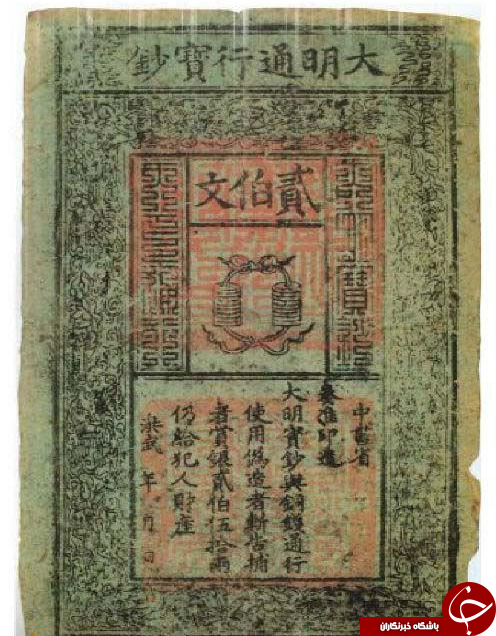 大明通行寶鈔
貳伯文
中書省
奏准印造
大明寶鈔與銅錢通行
使用偽造者斬告捕
者賞銀貳伯伍拾兩
仍給犯人財產
洪武 年 月 日
باشگاه خبرنگاران